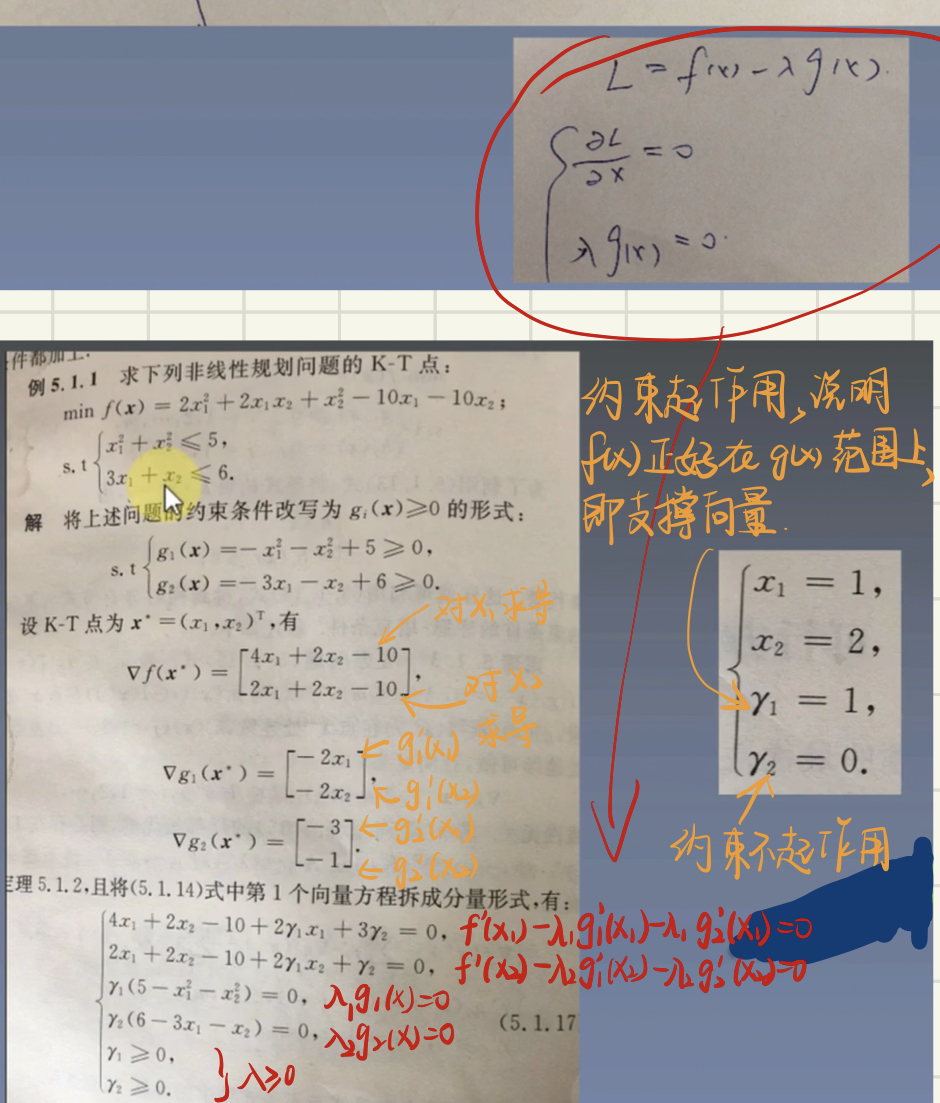 L = f(x) - λ g(x).
∂L/∂x = 0
λ g(x) = 0.
件都加上.
例 5.1.1 求下列非线性规划问题的 K-T 点：
min f(x) = 2x₁² + 2x₁x₂ + x₂² − 10x₁ − 10x₂；
s.t { x₁² + x₂² ≤ 5,
3x₁ + x₂ ≤ 6.
解 将上述问题的约束条件改写为 gᵢ(x)≥0 的形式：
s.t { g₁(x) = −x₁² − x₂² + 5 ≥ 0,
g₂(x) = −3x₁ − x₂ + 6 ≥ 0.
设 K-T 点为 x* = (x₁,x₂)ᵀ,有
∇f(x*) = [4x₁ + 2x₂ − 10
2x₁ + 2x₂ − 10],
∇g₁(x*) = [−2x₁
−2x₂],
∇g₂(x*) = [−3
−1].
定理 5.1.2,且将(5.1.14)式中第 1 个向量方程拆成分量形式,有：
4x₁ + 2x₂ − 10 + 2γ₁x₁ + 3γ₂ = 0,
2x₁ + 2x₂ − 10 + 2γ₁x₂ + γ₂ = 0,
γ₁(5 − x₁² − x₂²) = 0,
γ₂(6 − 3x₁ − x₂) = 0,
(5.1.17
γ₁ ≥ 0,
γ₂ ≥ 0.
对x₁求导
对x₂
求导
g₁'(x₁)
g₁'(x₂)
g₂'(x₁)
g₂'(x₂)
f'(x₁)-λ₁g₁'(x₁)-λ₁g₂'(x₁)=0
f'(x₂)-λ₂g₁'(x₂)-λ₂g₂'(x₂)=0
λ₁g₁(x)=0
λ₂g₂(x)=0
} λ≥0
约束起作用,说明
f(x)正好在g(x)范围上,
即支撑向量.
x₁ = 1,
x₂ = 2,
γ₁ = 1,
γ₂ = 0.
约束不起作用